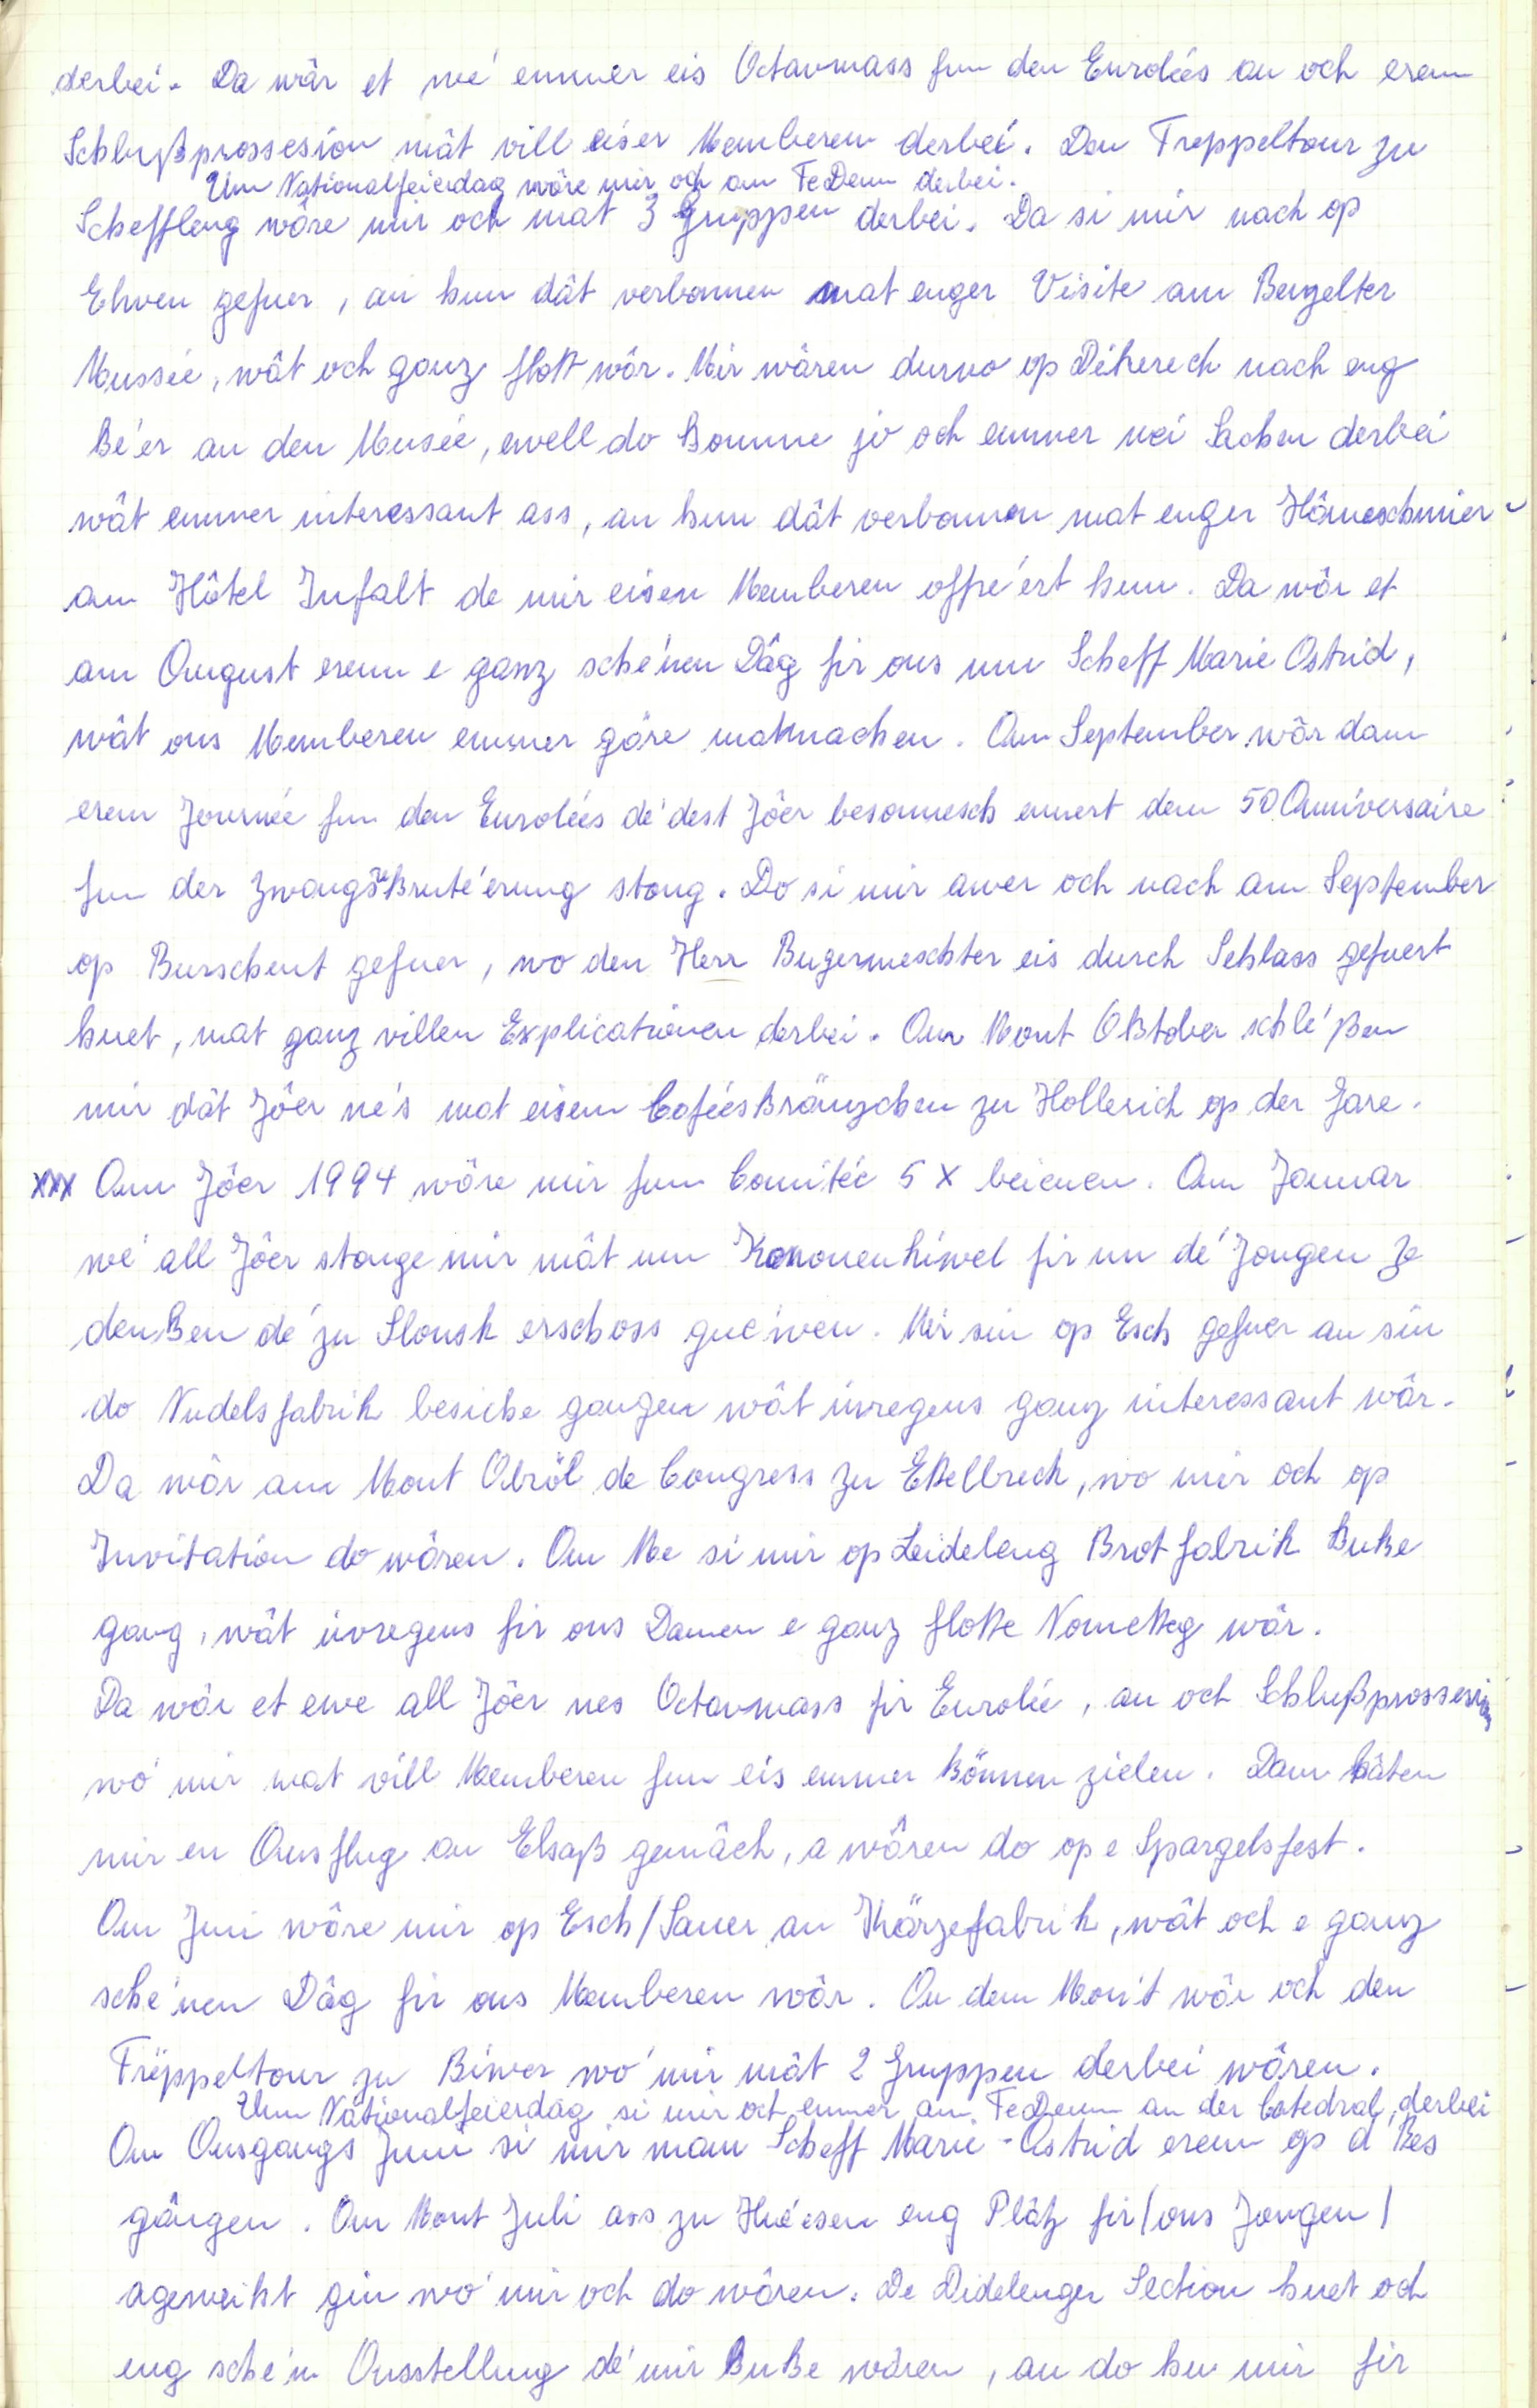 derbei. Da wär et wé emmer eis Octavmass fun den Enrolées an och erem
Schlußprossesion mât vill eiser Memberen derbei. Den Treppeltour zu
Um Nationalfeierdag wôre mir och am TeDeum derbei.
Scheffleng wôre mir och mat 3 Gruppen derbei. Da si mir nach op
Ehnen gefuer, an hun dât verbonnen mat enger Visite am Benzelter
Mussée, wât och ganz flott wôr. Mir wâren durno op Dikerech nach eng
Ké'er an den Musée, well do komme jo och emmer nei Sachen derbei
wât emmer interessant ass, an hun dât verbonnen mat enger Hâmeschmier
am Hôtel Infalt de mir eisen Memberen offré'ert hun. Da wôr et
am August erem e ganz sché'nen Dâg fir ons um Scheff Marie Astrid,
wât ons Memberen emmer gäre matmachen. Am September wôr dann
erem Journée fun den Enrolées dé dest Jôer besonnesch ennert dem 50 Anniversaire
fun der Zwangsrekruté'erung stong. Do si mir awer och nach am September
op Burschent gefuer, wo den Herr Bugermeschter eis durch Schlass gefuert
huet, mat ganz villen Explicatiounen derbei. Am Mont Oktober schlé'ßen
mir dât Jôer ne's mat eisem Caféeskränzchen zu Hollerich op der Gare.
XXX Am Jôer 1994 wôre mir fum Comitée 5 X beienen. Am Januar
wé all Jôer stonge mir mât um Kanounenhiwel fir un dé Jongen ze
denken dé zu Slonsk erschoss gue'wen. Mir sin op Esch gefuer an sin
do Nudelsfabrik besiche gangen wât iwregens ganz interessant wâr.
Da wôr am Mont Abrôl de Congress zu Ettelbreck, wo mir och op
Invitation do wôren. Am Me si mir op Leideleng Brotfabrik kuke
gang, wât iwregens fir ons Damen e ganz flotte Nometteg wôr.
Da wôr et ewe all Jôer nes Octavmass fir Enrolée, an och Schlußprossession
wo mir mat vill Memberen fun eis emmer können zielen. Dann hâten
mir en Ausflug an Elsaß gemâch, a wôren do op e Spargelsfest.
Am Juni wôre mir op Esch/Sauer an Kärzefabrik, wât och e ganz
sché'nen Dâg fir ons Memberen wôr. An dem Mon't wôr och den
Trëppeltour zu Biwer wo mir mât 2 Gruppen derbei wôren.
Um Nâtionalfeierdâg si mir och emmer am TeDeum an der Catedral, derbei
Am Ausgangs Juni si mir mam Scheff Marie-Astrid erem op d'Res
gângen. Am Mont Juli ass zu Hué'sen eng Plâtz fir (ons Jongen)
ageweiht gin wo mir och do wôren. De Didelenger Section huet och
eng sché'n Ausstellung dé mir kuke wâren, an do hu mir fir